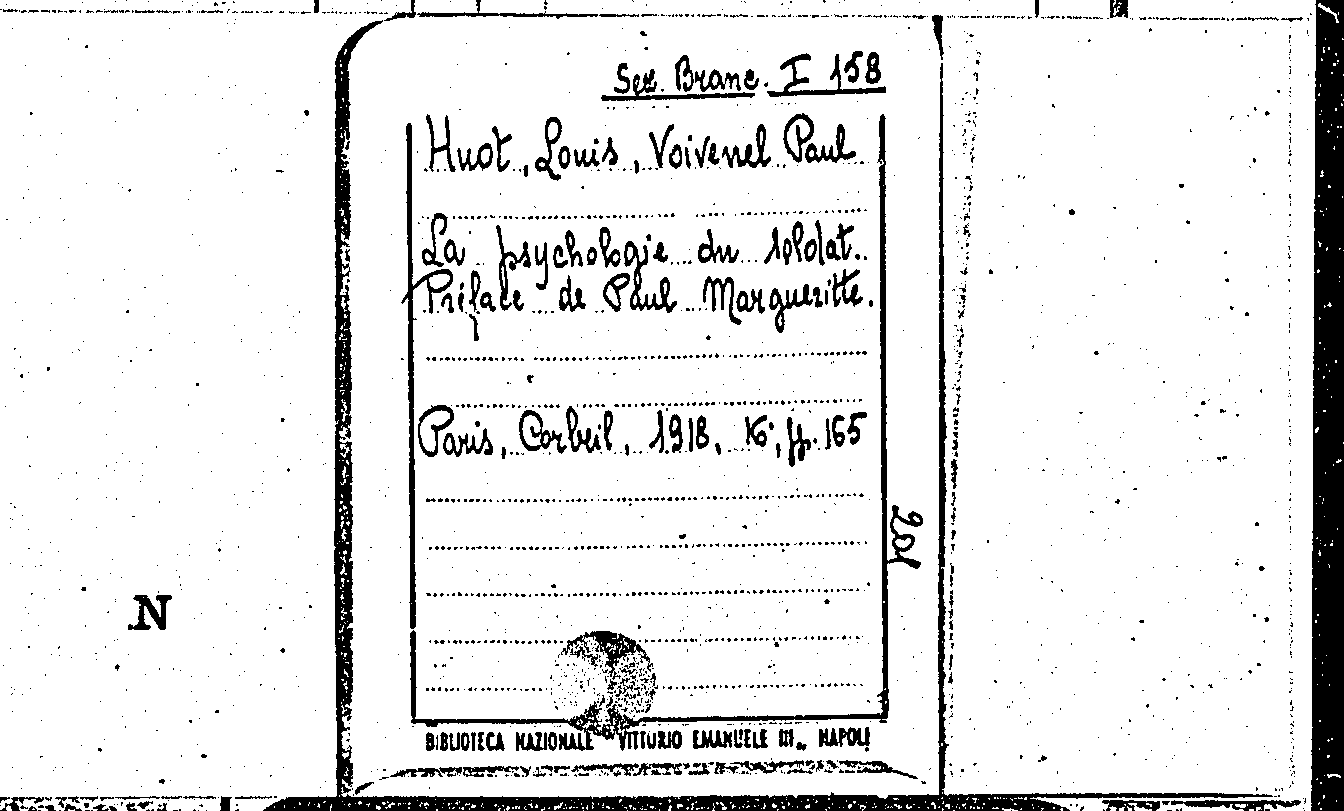 Sez. Branc. I 158
Huot, Louis, Voivenel Paul
La psychologie du soldat.
Préface de Paul Margueritte.
Paris, Corbeil, 1918, 16°, pp. 165
201
N
BIBLIOTECA NAZIONALE "VITTORIO EMANUELE III„ NAPOLI